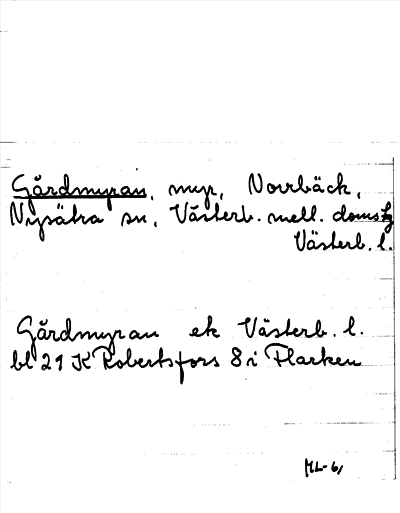 Gårdmyran, myr, Norrbäck,
Nysätra sn, Västerb. mell. doms.
Västerb. l.
Gårdmyran ek Västerb. l.
bl 21 K Robertsfors 8 i Flarken
ML-61